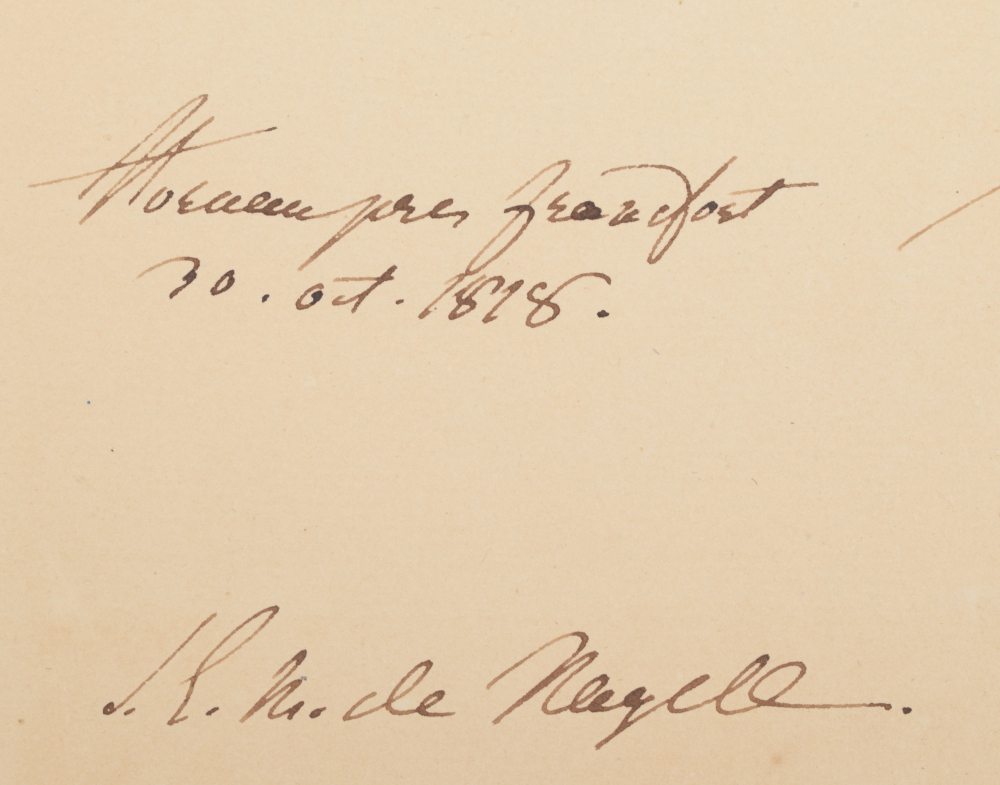 pres francfort
30. oct. 1818.
S. E. M. de Nagell.